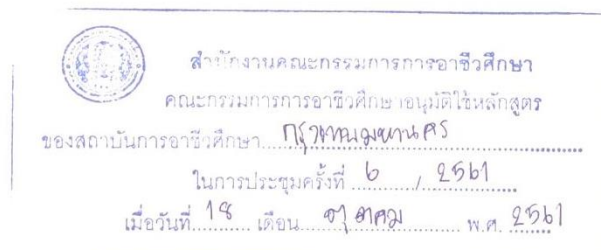 สำนักงานคณะกรรมการการอาชีวศึกษา
คณะกรรมการการอาชีวศึกษาอนุมัติใช้หลักสูตร
ของสถาบันการอาชีวศึกษา กรุงเทพมหานคร
ในการประชุมครั้งที่ 6 / 2561
เมื่อวันที่ 18 เดือน ตุลาคม พ.ศ. 2561